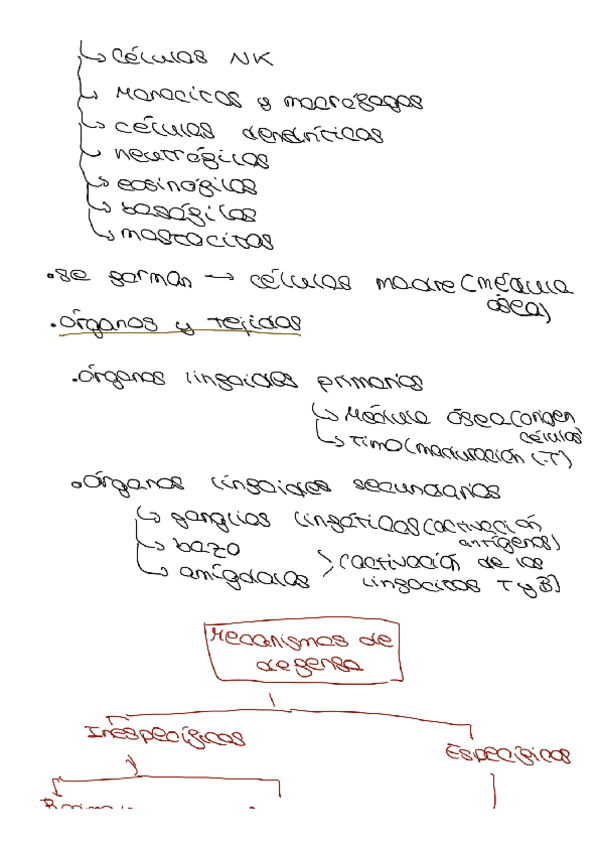 células NK
Monocitos y macrófagos
células dendríticas
neutrófilos
eosinófilos
basófilos
mastocitos
.se forman → células madre (médula
ósea)
.órganos y tejidos
.órganos linfoides primarios
Médula ósea (origen
células)
Timo (maduración L.T)
.órganos linfoides secundarios
ganglios linfáticos (activación
antígenos)
bazo
(activación de los
amígdalas
linfocitos T y B)
Mecanismos de
defensa
Inespecíficos
Específicos